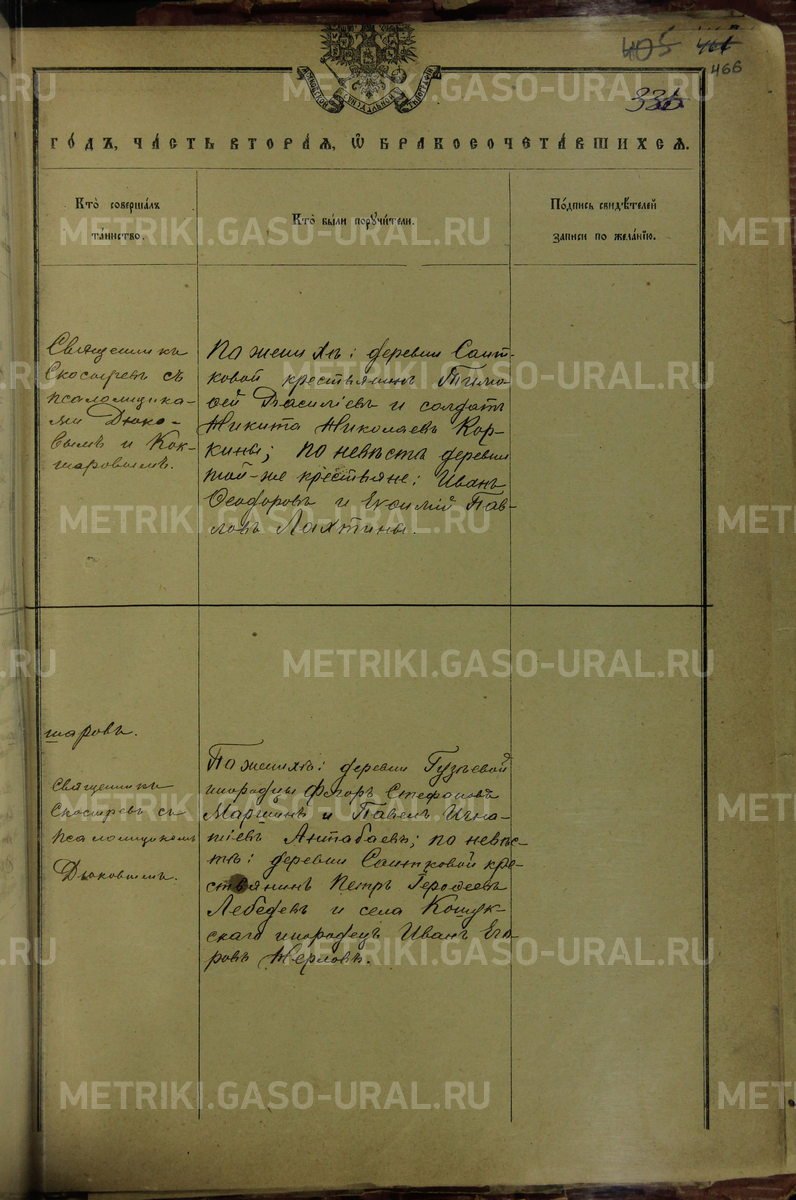 405
466
336
ГО́ДЪ, ЧА́СТЬ ВТОРА́Я, Ѿ БРАКОСОЧЕТА́ВШИХСЯ.
Кто̀ соверша́лъ
та́инство.
Кто̀ бы́ли поручи́тели.
По́дпись свидѣ́телей
за́писи по жела́нїю.
Священникъ
Скосыревъ съ
псаломщика-
ми Дюко-
вымъ и Кок-
шаровымъ.
По женихѣ: деревни Саит-
ковой крестьянинъ Тимо
ѳей Васильевъ и солдатъ
Никита Николаевъ Кор-
кины; по невѣстѣ деревни
той-же крестьяне: Иванъ
Ѳеодоровъ и Екимій Пав-
ловъ Лахтины.
шаровъ.
Священникъ
Скосыревъ съ
псаломщикомъ
Дюковымъ.
По женихѣ: деревни Гузѣевой
инородцы Ѳедоръ Стефановъ
и Павелъ Игна-
тіевъ Антабаевъ; по невѣс-
тѣ: деревни Саитковой кре-
стьянинъ Петръ
Лебедевъ и села Кошук-
скаго инородецъ Иванъ Его
ровъ Жерловъ.
METRIKI.GASO-URAL.RU